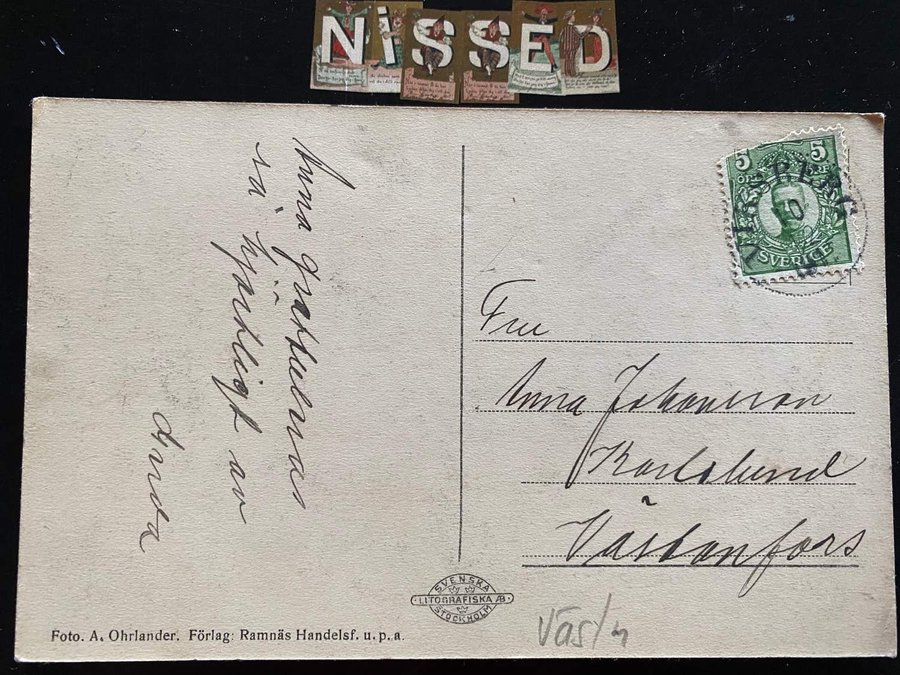 NiSSED
Anna gratuleras
så hjärtligt av
5 5
VIRSBERG
SVERIGE
Fru
Anna Johansson
Karlslund
Västanfors
SVENSKA
LITOGRAFISKA AB
STOCKHOLM
Foto. A. Ohrlander. Förlag: Ramnäs Handelsf. u. p. a.